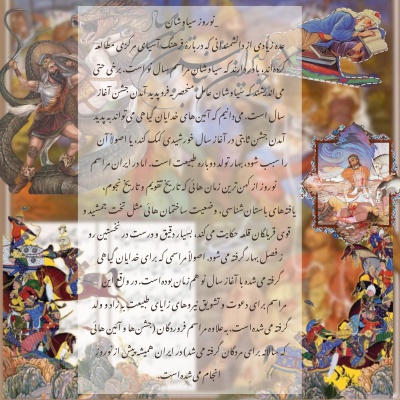 _نوروز سیاوشان
عده زیادی از دانشمندانی که درباره فرهنگ آسیای مرکزی مطالعه
کرده‌اند، باور دارند که سیاوشان مراسم سال نو است. برخی حتی
می اندیشند که سیاوشان عامل منحصر به فرد پدید آمدن جشن آغاز
سال است. می‌دانیم که آئین‌های خدایان گیاهی می‌تواند به پدید
آمدن جشن ثابتی در آغاز سال خورشیدی کمک کند، یا اصولاً آن
را سبب شود. بهار تولد دوباره طبیعت است. اما در ایران مراسم
نوروز از کهن‌ترین زمان هائی که تاریخ تقویم و تاریخ نجوم،
یافته‌های باستان شناسی، وضعیت ساختمان هائی مثل تخت جمشید و
قوی قریلگان قلعه حکایت می‌کند، بسیار دقیق و درست در نخستین رو
ز فصل بهار گرفته می‌شود. اصولاً مراسمی که برای خدایان گیاهی
گرفته می‌شده با آغاز سال نو هم زمان بوده است. در واقع این
مراسم برای دعوت و تشویق نیروهای زایای طبیعت به زاد و ولد
گرفته می شده است. به علاوه مراسم فروردگان (جشن‌ها و آئین هائی
که سالانه برای مردگان گرفته می شد) در ایران همیشه پیش از نوروز
انجام می شده است.